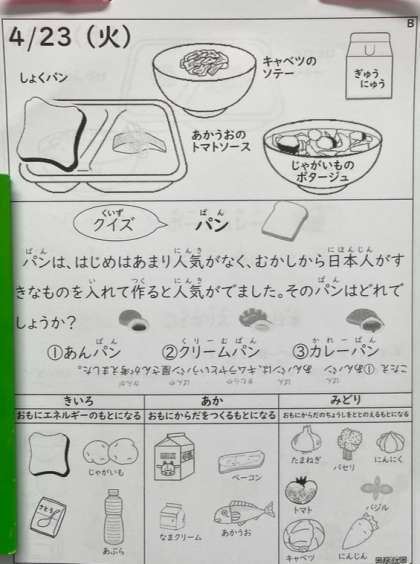 4/23（火）
B
しょくパン
キャベツの
ソテー
ぎゅう
にゅう
あかうおの
トマトソース
じゃがいもの
ポタージュ
くいず
クイズ
ぱん
パン
ぱん にんき にほんじん
パンは、はじめはあまり人気がなく、むかしから日本人がす
い つく にんき ぱん
きなものを入れて作ると人気がでました。そのパンはどれで
しょうか？
ぱん くりーむぱん かれーぱん
①あんパン ②クリームパン ③カレーパン
こたえ ①あんパン
きいろ あか みどり
おもにエネルギーのもとになる おもにからだをつくるもとになる おもにからだのちょうしをととのえるもとになる
じゃがいも
さとう
あぶら
ベーコン
なまクリーム
あかうお
たまねぎ
パセリ
にんにく
トマト
バジル
キャベツ
にんじん